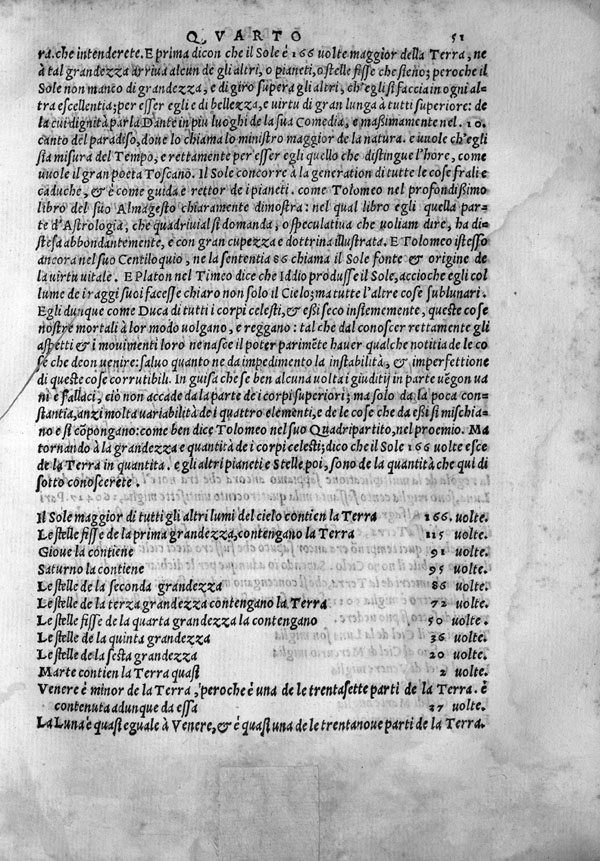 QVARTO 51
ra. che intenderete. E prima dicon che il Sole é 166 uolte maggior della Terra, ne
à tal grandezza arriua alcun de gli altri, o pianeti, o stelle fisse che sieno; peroche il
Sole non manco di grandezza, e di giro supera gli altri, ch'egli si faccia in ogni al-
tra escellentia; per esser egli e di bellezza, e uirtu di gran lunga à tutti superiore: de
la cui dignità parla Dante in più luoghi de la sua Comedia, e maßimamente nel. 10.
canto del paradiso, doue lo chiama lo ministro maggior de la natura. e uuole ch'egli
sia misura del Tempo, e rettamente per esser egli quello che distingue l'hore, come
uuole il gran poeta Toscano. Il Sole concorre à la generation di tutte le cose frali e
caduche, & è come guida e rettor de i pianeti. come Tolomeo nel profondißimo
libro del suo Almagesto chiaramente dimostra: nel qual libro egli quella par-
te d'Astrologia, che quadriuial si domanda, o speculatiua che uoliam dire, ha di-
stesa abbondantemente, e con gran cupezza e dottrina illustrata. E Tolomeo istesso
ancora nel suo Centiloquio, ne la sententia 86 chiama il Sole fonte & origine de
la uirtu uitale. E Platon nel Timeo dice che Iddio produsse il Sole, accioche egli col
lume de i raggi suoi facesse chiaro non solo il Cielo; ma tutte l'altre cose sublunari.
Egli dunque come Duca di tutti i corpi celesti, & eßi seco insiememente, queste cose
nostre mortali à lor modo uolgano, e reggano: tal che dal conoscer rettamente gli
aspetti & i mouimenti loro ne nasce il poter parimẽte hauer qualche notitia de le co
se che deon uenire: saluo quanto ne da impedimento la instabilità, & imperfettione
di queste cose corrutibili. In guisa che se ben alcuna uolta i giuditij in parte uẽgon ua
ni e fallaci, ciò non accade da la parte de i corpi superiori; ma solo da la poca con-
stantia, anzi molta variabilità de i quattro elementi, e de le cose che da eßi si mischia-
no e si cõpongano: come ben dice Tolomeo nel suo Quadripartito, nel proemio. Ma
tornando à la grandezza e quantità de i corpi celesti; dico che il Sole 166 uolte esce
de la Terra in quantita. e gli altri pianeti e Stelle poi, sono de la quantità che qui di
sotto conoscerete.
Il Sole maggior di tutti gli altri lumi del cielo contien la Terra 166. uolte.
Le stelle fisse de la prima grandezza, contengano la Terra 115 uolte.
Gioue la contiene 91 uolte.
Saturno la contiene 95 uolte.
Le stelle de la seconda grandezza 86 uolte.
Le stelle de la terza grandezza contengano la Terra 72 uolte.
Le stelle fisse de la quarta grandezza la contengano 50 uolte.
Le stelle de la quinta grandezza 36 uolte.
Le stelle de la sesta grandezza 20 uolte.
Marte contien la Terra quasi 2 uolte.
Venere é minor de la Terra, peroche é una de le trentasette parti de la Terra. é
contenuta adunque da essa 37 uolte.
La Luna è quasi eguale à Venere, & é quasi una de le trentanoue parti de la Terra.